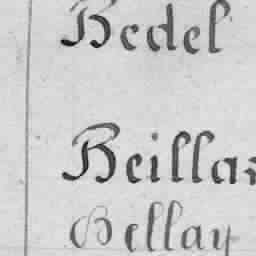 Bedel
Beillar
Bellay